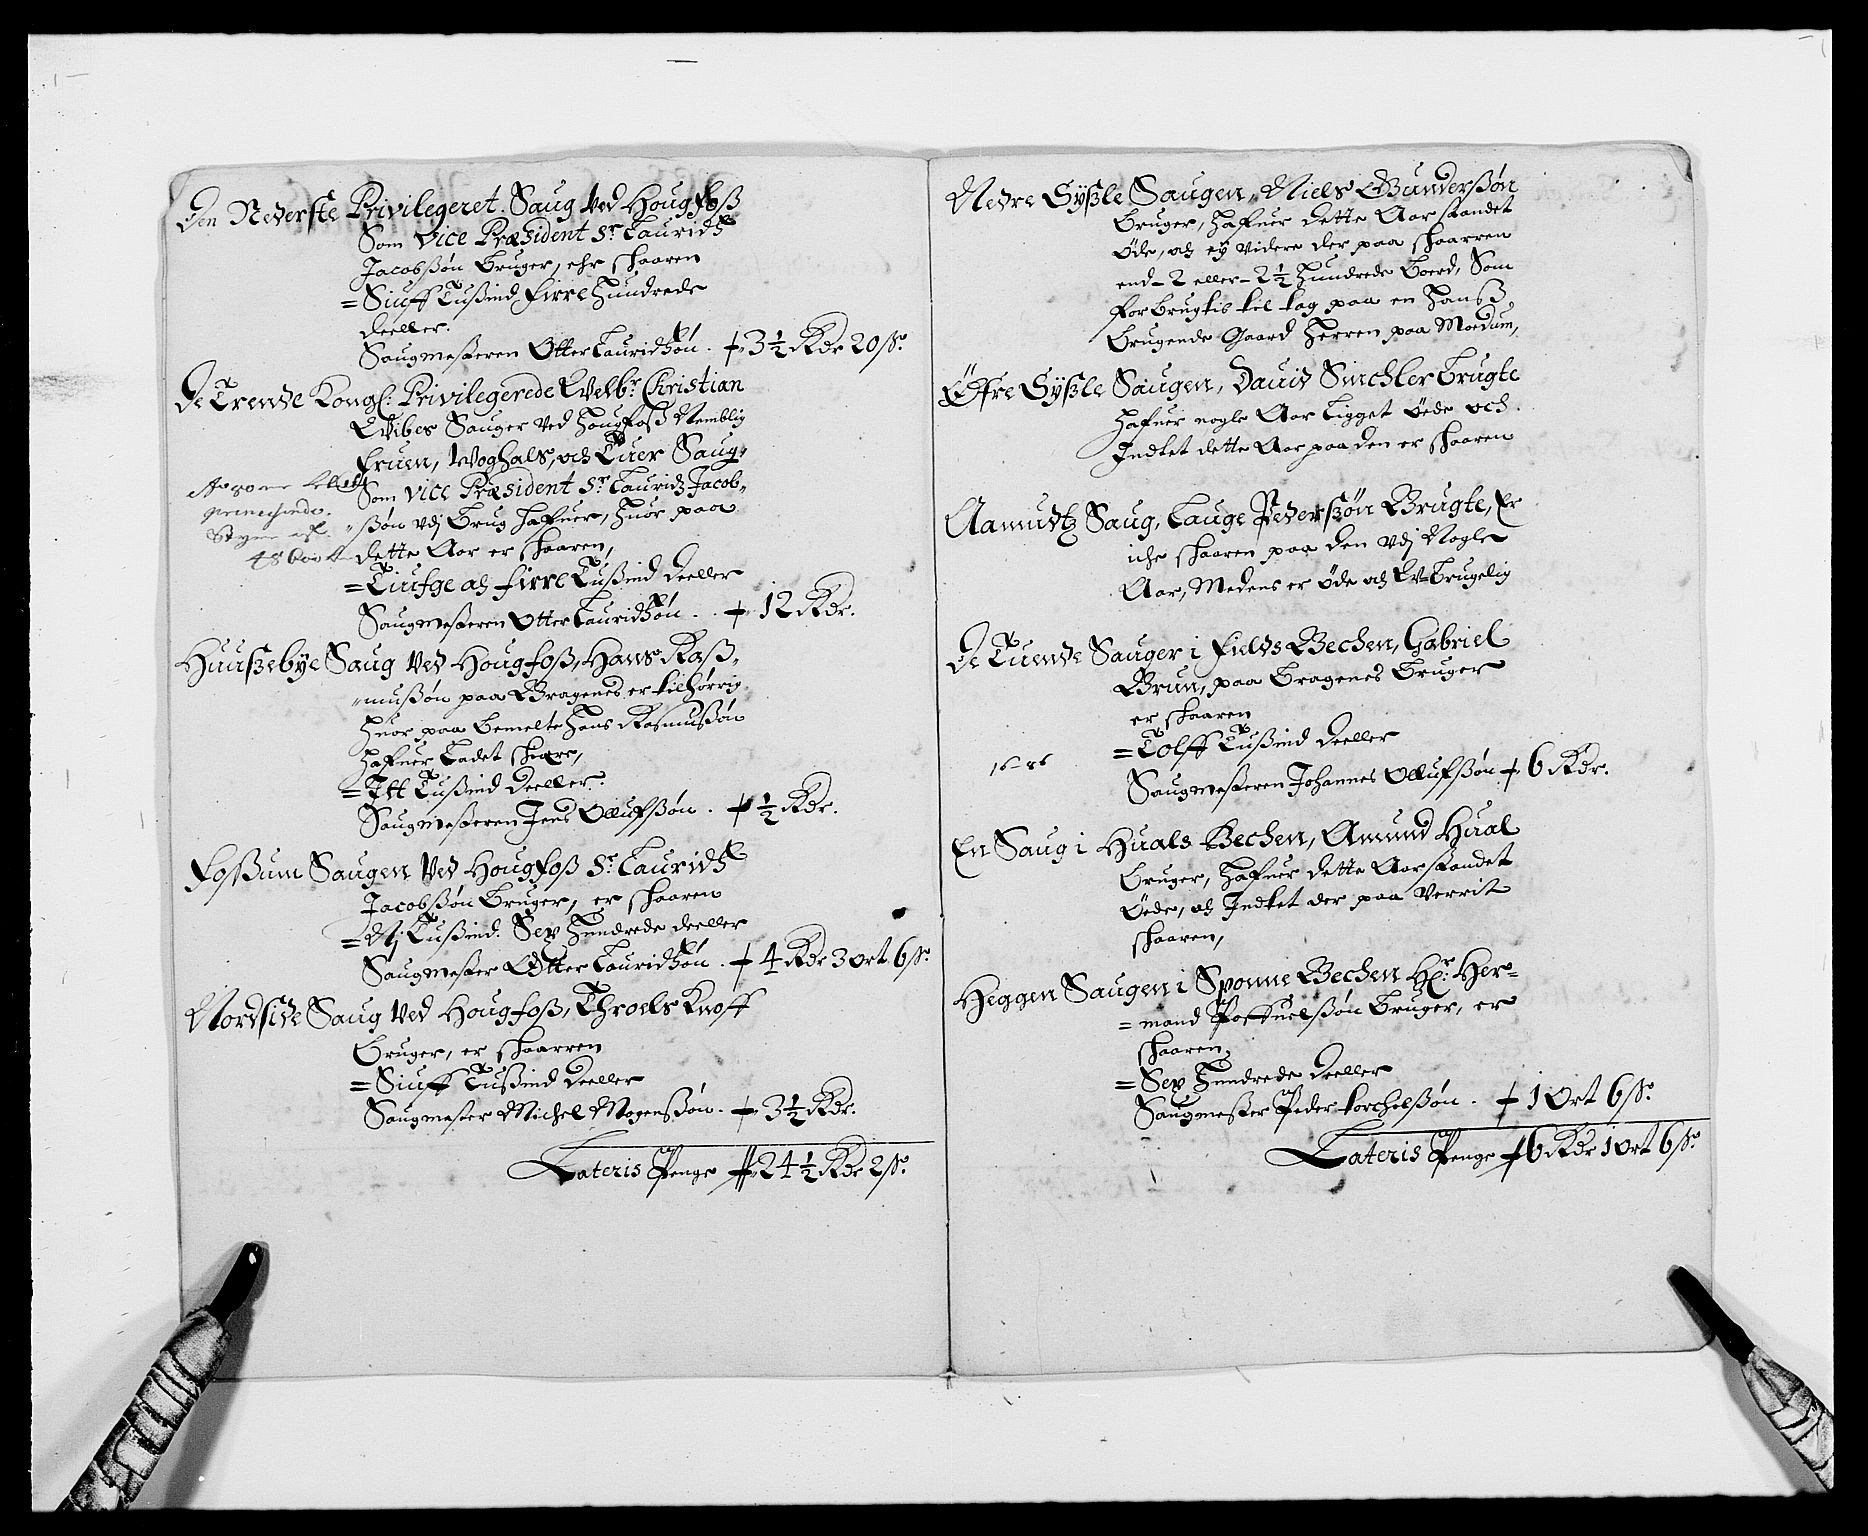 Den Nederste Privilegeret Saug Ved Hougfoß
Som Vice Præsident Sr Lauridtz
Jacobßøn Bruger, ehr skaaren
= Siuff Tußind Firre Hundrede
deeller.
Saugmesteren Otter Lauridtzøn. + 3½ Rdr 20 ß.
De Trende Kongl: Privilegerede Velbr Christian
Wibes Sauger Ved Hougfoß Nemblig
Fruen, Woghals, och Tuer Saug,
Som Vice Præsident Sr Lauridtz Jacob-
ßøn vdj Brug hafuer, Huor paa
dette Aar er skaaren,
= Tiufge och Firre Tußind deeller
Saugmesteren Otter Lauridtzøn. + 12 Rdr.
Huußebye Saug Ved Hougfoß, Hans Raß-
mußøn paa Bragenes er tilhørrig
Huor paa bemelte Hans Rasmußøn
hafuer Ladet skiære,
= Itt Tußind deeller.
Saugmesteren Jens Ollufßøn. + ½ Rdr.
Foßum Saugen Ved Hougfoß Sr Lauridtz
Jacobßøn Bruger, er skaaren
= Nj Tußind Sex Hundrede deeller
Saugmester Otter Lauridtzøn. + 4 Rdr 3 ort 6 ß.
Nordside Saug Ved Hougfoß, Throels Knoff
Bruger, er skaarren
= Siuff Tußind deeller
Saugmester Michel Mogenßøn. + 3½ Rdr.
Lateris Penge + 24½ Rdr 2 ß.
Nedre Syßle Saugen, Niels Gunderßøn
Bruger, hafuer dette Aar standet
Øde, och ey videre der paa skaarren
end 2 eller 2½ Hundrede Boerd, Som
forbrugtis til tag paa en Hanß
Brugende Gaard Herren paa Moedum,
Øfre Syßle Saugen, Dauid Sinchler Brugte
hafuer nogle Aar Ligget Øede och
Indtet dette Aar paa den er skaaren
Aamudtz Saug, Lauge Pederßøn Brugte, Er
iche skaaren paa den vdj Nogle
Aar, Medens er Øde och Vbrugelig
De Tuende Sauger i Fields Bechen, Gabriel
Brun, paa Bragenes Bruger
er skaaren
= Tolff Tußind deeller
16-86
Saugmesteren Johannes Ollufßøn + 6 Rdr.
En Saug i Huals Bechen, Amund Hual
Bruger, hafuer dette Aar standet
Øede, och Indtet der paa Verrit
skaaren,
Heggen Saugen i Sponne Bechen Hr Her-
= mand Poffuelßøn Bruger, er
skaaren
= Sex Hundrede deeller
Saugmester Peder Torchelßøn. + 1 Ort 6 ß.
Lateris Penge + 6 Rdr 1 ort 6 ß.